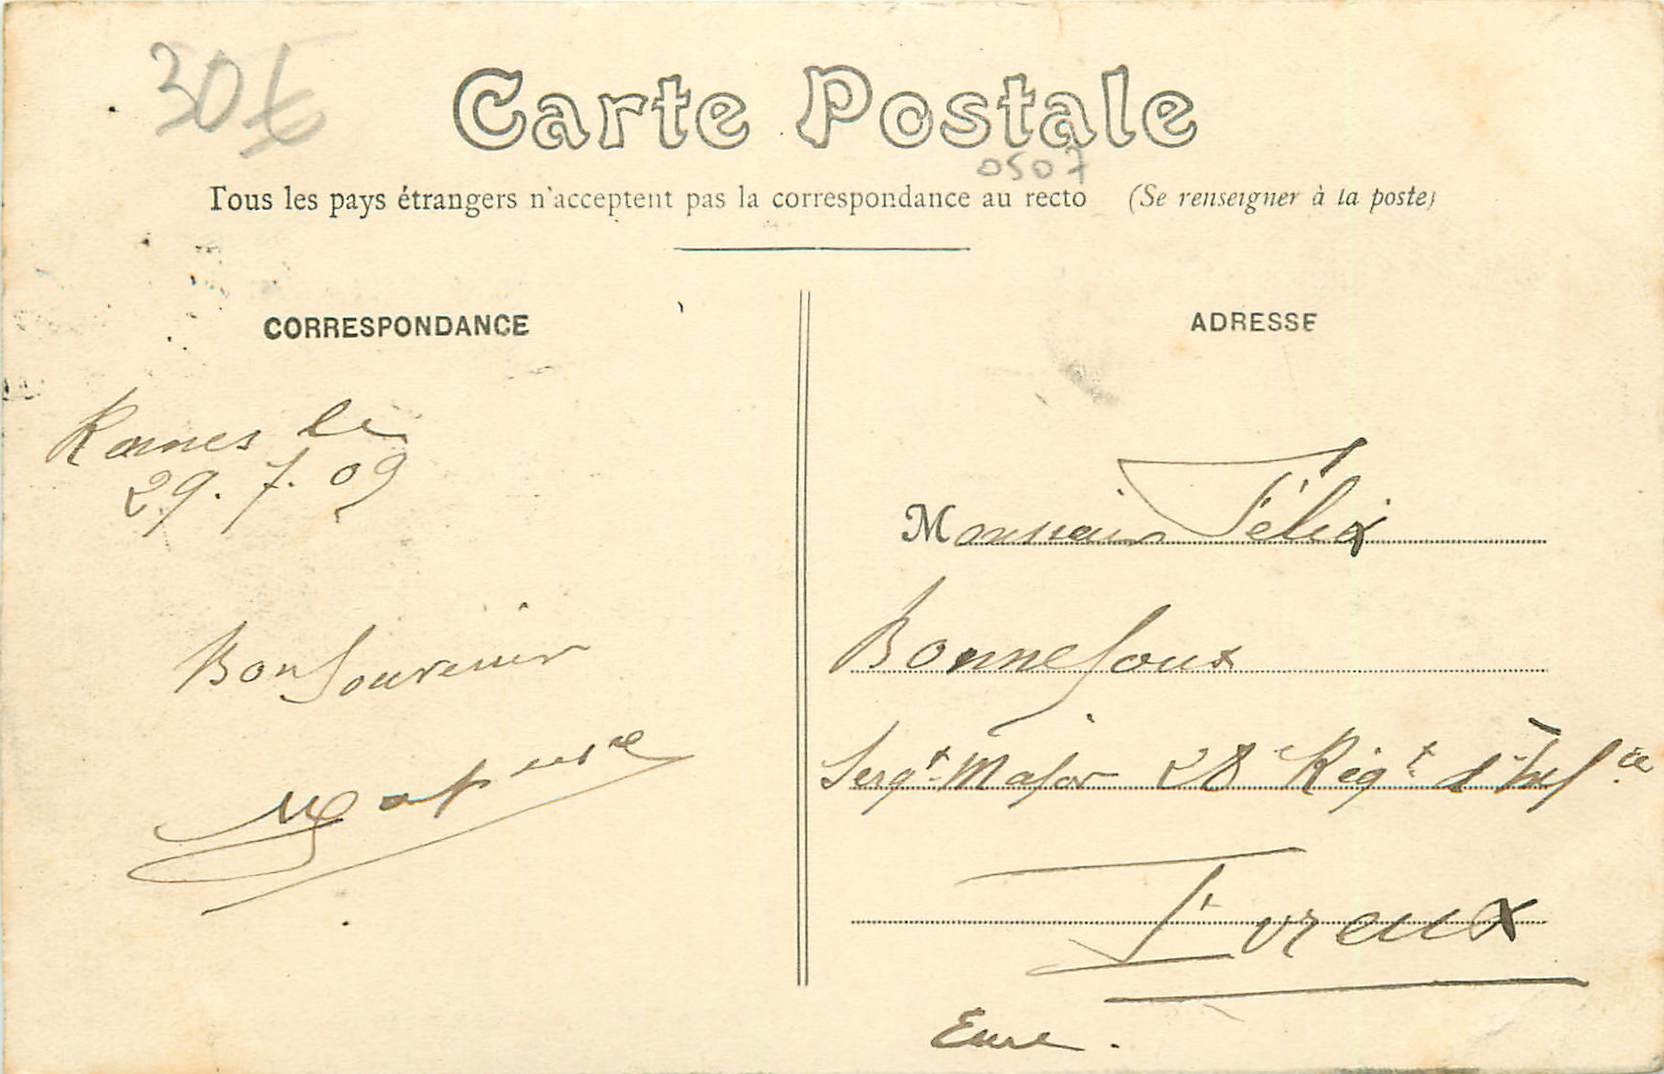 30€
Carte Postale
0507
Tous les pays étrangers n'acceptent pas la correspondance au recto (Se renseigner à la poste)
CORRESPONDANCE
Ranes le
29. 7. 09
Bon Souvenir
ADRESSE
Monsieur Félix
Bonnefoux
Sergt Major 28e Régt d'Infie
Evreux
Eure.